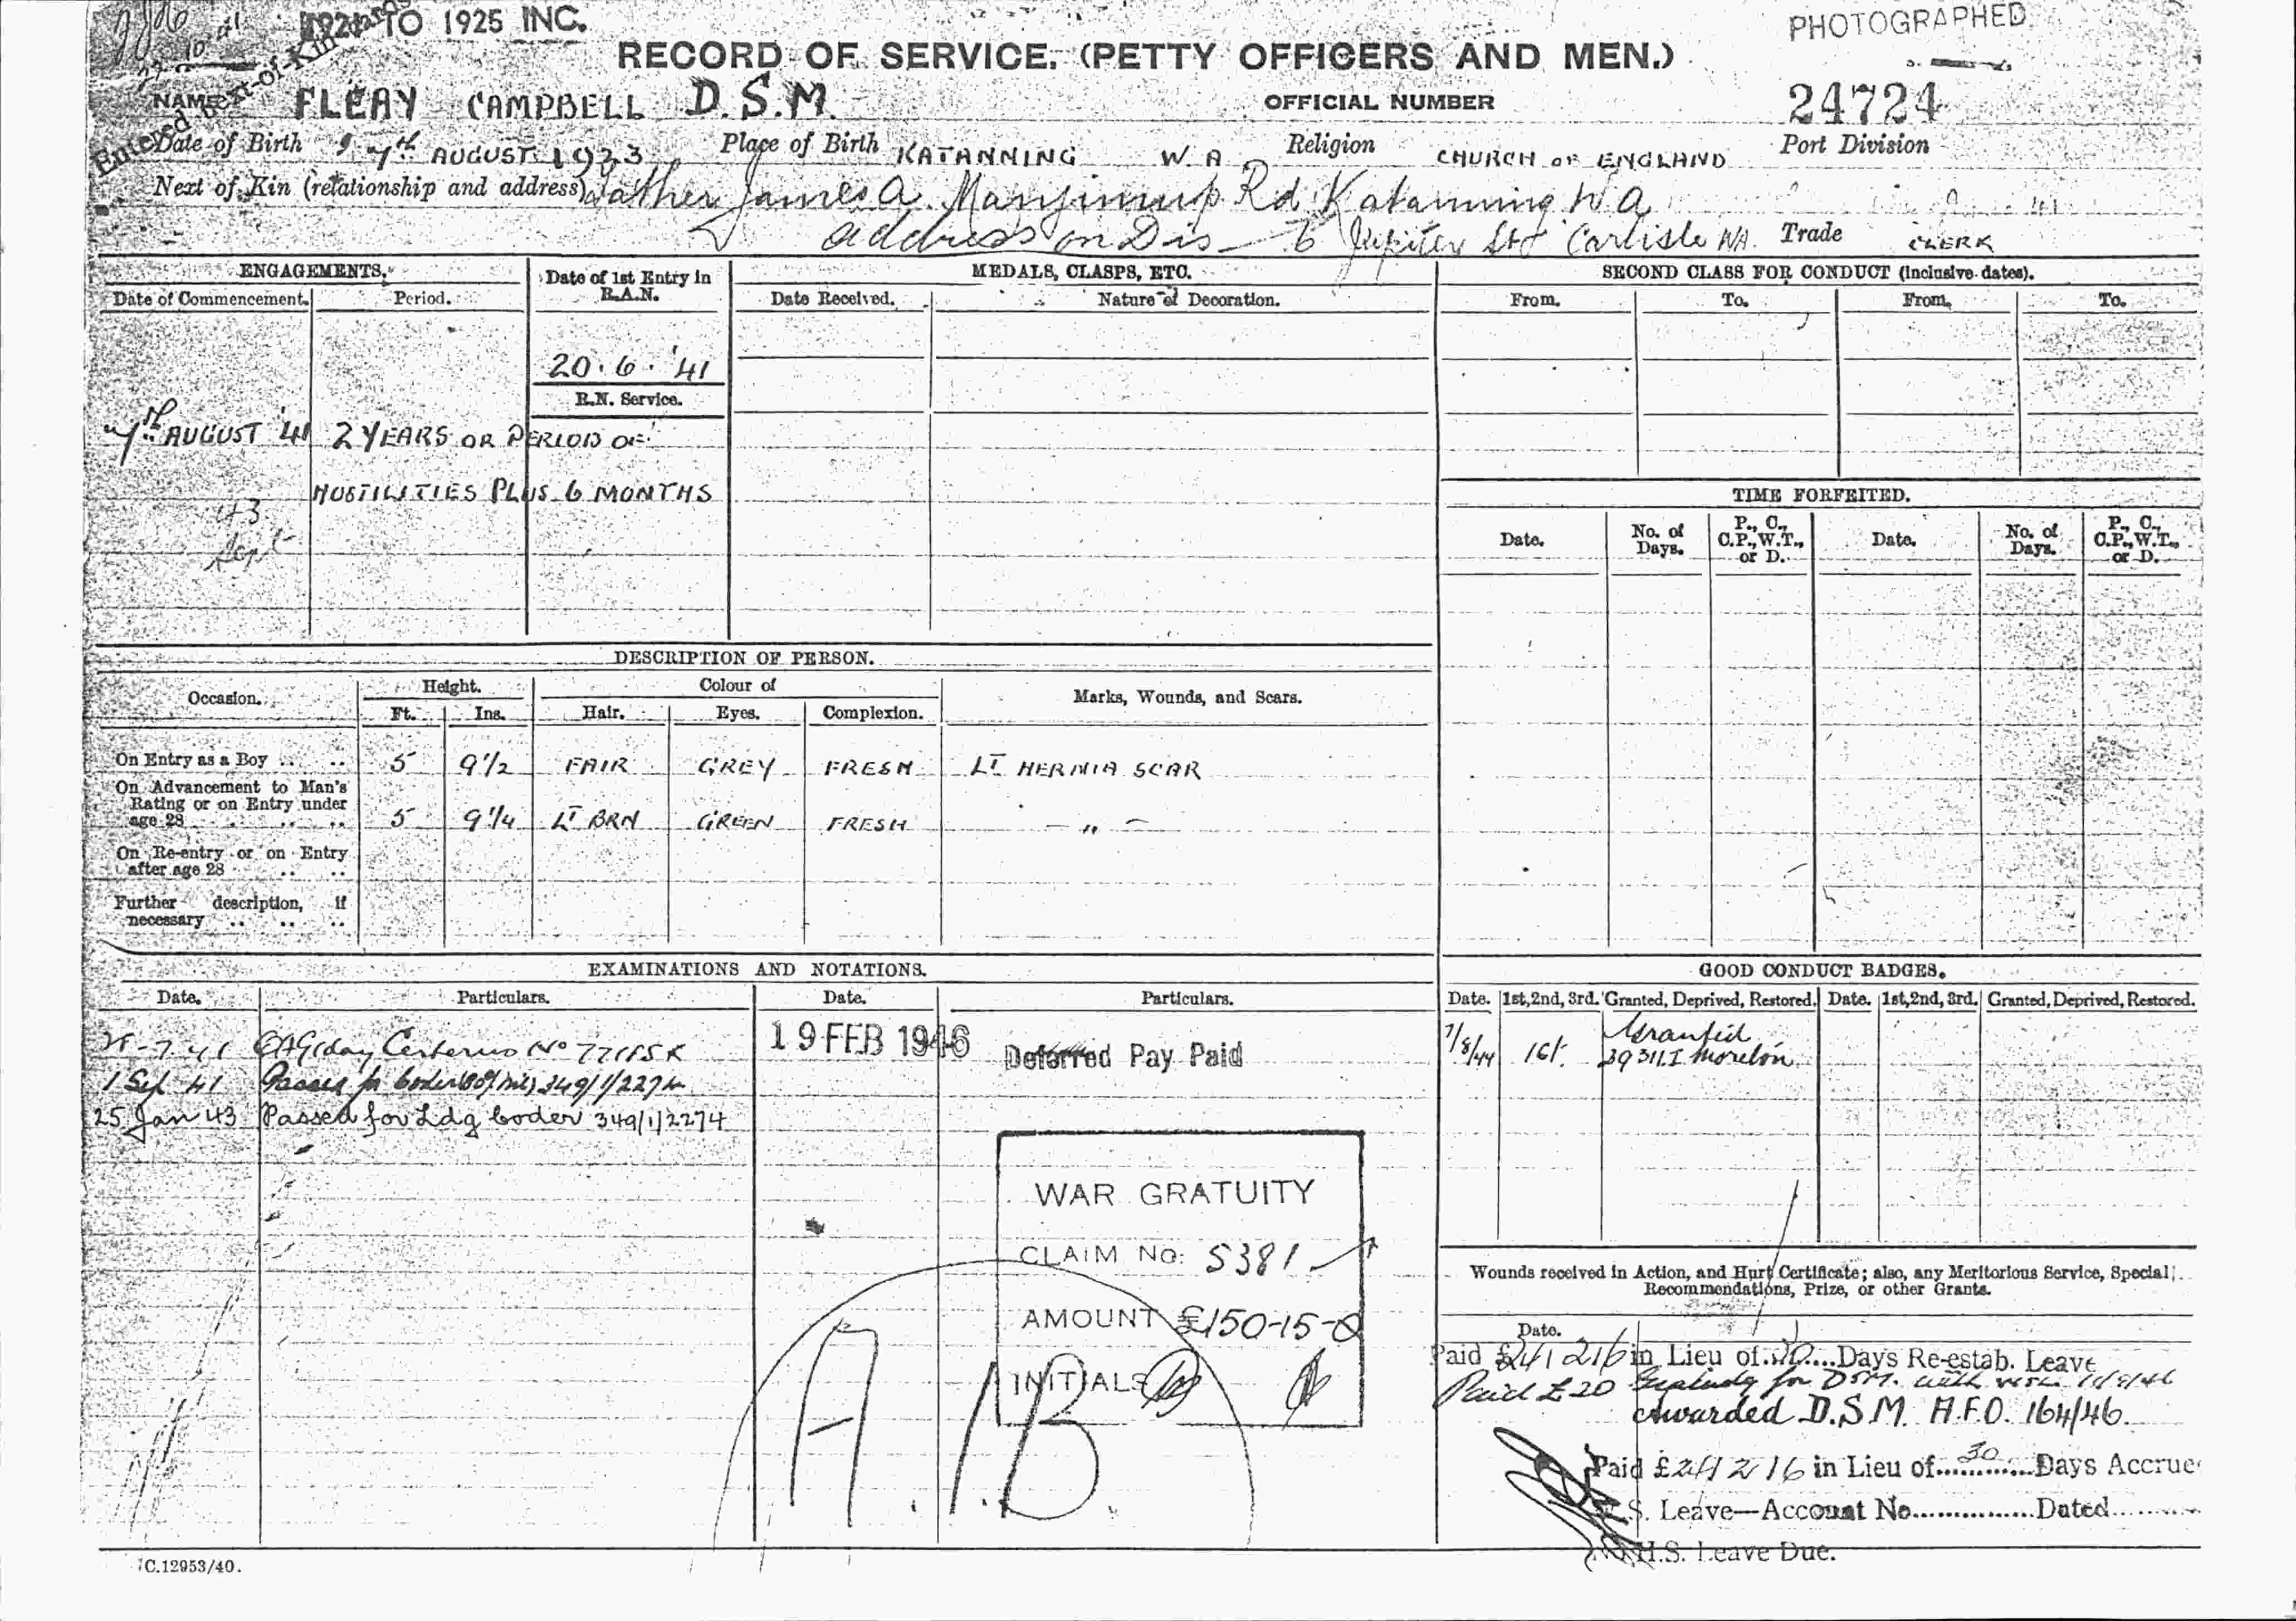 1921 TO 1925 INC.
PHOTOGRAPHED
RECORD OF SERVICE. (PETTY OFFICERS AND MEN.)
Entered Next-of-Kin
NAME FLEAY CAMPBELL D.S.M. OFFICIAL NUMBER 24724
Date of Birth 7th AUGUST 1923 Place of Birth KATANNING W A Religion CHURCH OF ENGLAND Port Division
Next of Kin (relationship and address) Father James A. Manjimup Rd Katanning W A
address on Dis — 6 Jupiter St Carlisle WA. Trade CLERK
ENGAGEMENTS. Date of 1st Entry in R.A.N. MEDALS, CLASPS, ETC. SECOND CLASS FOR CONDUCT (inclusive dates).
Date of Commencement. Period. Date Received. Nature of Decoration. From. To. From. To.
20 . 6 . '41
R.N. Service.
7th AUGUST '41 2 YEARS OR PERIOD OF
HOSTILITIES PLUS 6 MONTHS
43
Sept
TIME FORFEITED.
Date. No. of Days. P., C., C.P., W.T., or D. Date. No. of Days. P., C., C.P., W.T., or D.
DESCRIPTION OF PERSON.
Occasion. Height. Colour of Marks, Wounds, and Scars.
Ft. Ins. Hair. Eyes. Complexion.
On Entry as a Boy .. .. 5 9 1/2 FAIR GREY FRESH LT HERNIA SCAR
On Advancement to Man's
Rating or on Entry under
age 28 .. .. .. .. 5 9 1/4 LT BRN GREEN FRESH — " —
On Re-entry or on Entry
after age 28 .. ..
Further description, if
necessary .. .. ..
EXAMINATIONS AND NOTATIONS. GOOD CONDUCT BADGES.
Date. Particulars. Date. Particulars. Date. 1st, 2nd, 3rd. Granted, Deprived, Restored. Date. 1st, 2nd, 3rd. Granted, Deprived, Restored.
19 FEB 1946 Deferred Pay Paid
7/8/44 1st. Granted
Moreton
1 Sep 41 Passed for Coder
25 Jan 43 Passed for Ldg Coder 349/1/2274
WAR GRATUITY
CLAIM No: 5381
AMOUNT £150-15-0
INITIALS
A.1.B.
Wounds received in Action, and Hurt Certificate; also, any Meritorious Service, Special
Recommendations, Prize, or other Grants.
Date.
Paid £24/2/6 in Lieu of 30 Days Re-estab. Leave
Paid £20 Gratuity for DSM.
Awarded D.S.M. A.F.O. 164/46
Paid £24/2/6 in Lieu of 30 Days Accrue
S. Leave—Account No. Dated
H.S. Leave Due.
C.12953/40.